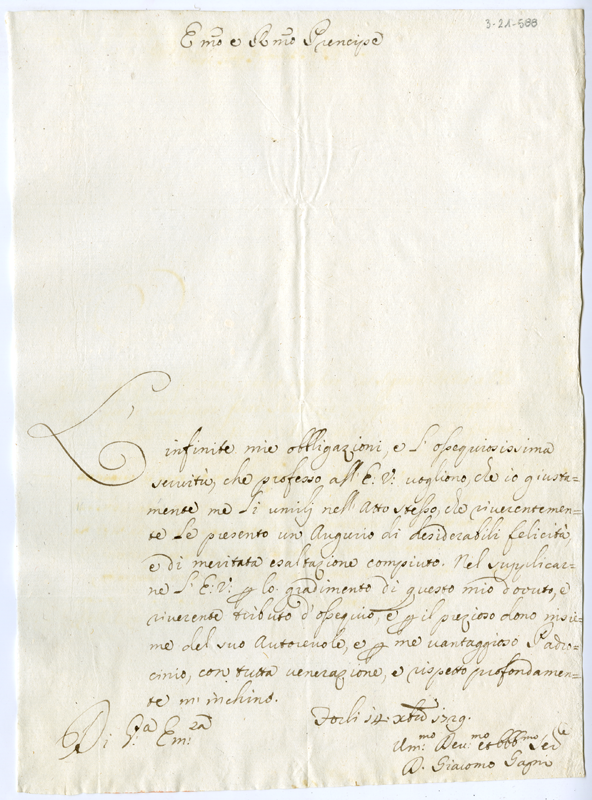 3-21-588
E.mo e R.mo Prencipe
L'infinite mie obbligazioni, e l'ossequiosissima
servitù, che professo all'E: V: vogliono, che io giusta=
mente me Li umilij nell'Atto stesso, che riverentemen=
te Le presento un Augurio di desiderabili felicità,
e di meritata esaltazione compiuto. Nel supplicar=
ne l'E: V: p lo gradimento di questo mio dovuto, e
riverente tributo d'ossequio, e p il prezioso dono insie=
me del suo Autorevole, e p me vantaggioso Padro=
cinio, con tutta venerazione, e rispetto profondamen=
te m'inchino.
Di V.ra Em:za
Forlì 14: Xbre 1729.
Um:mo Dev:mo et Obb:mo Ser:le
D. Giacomo